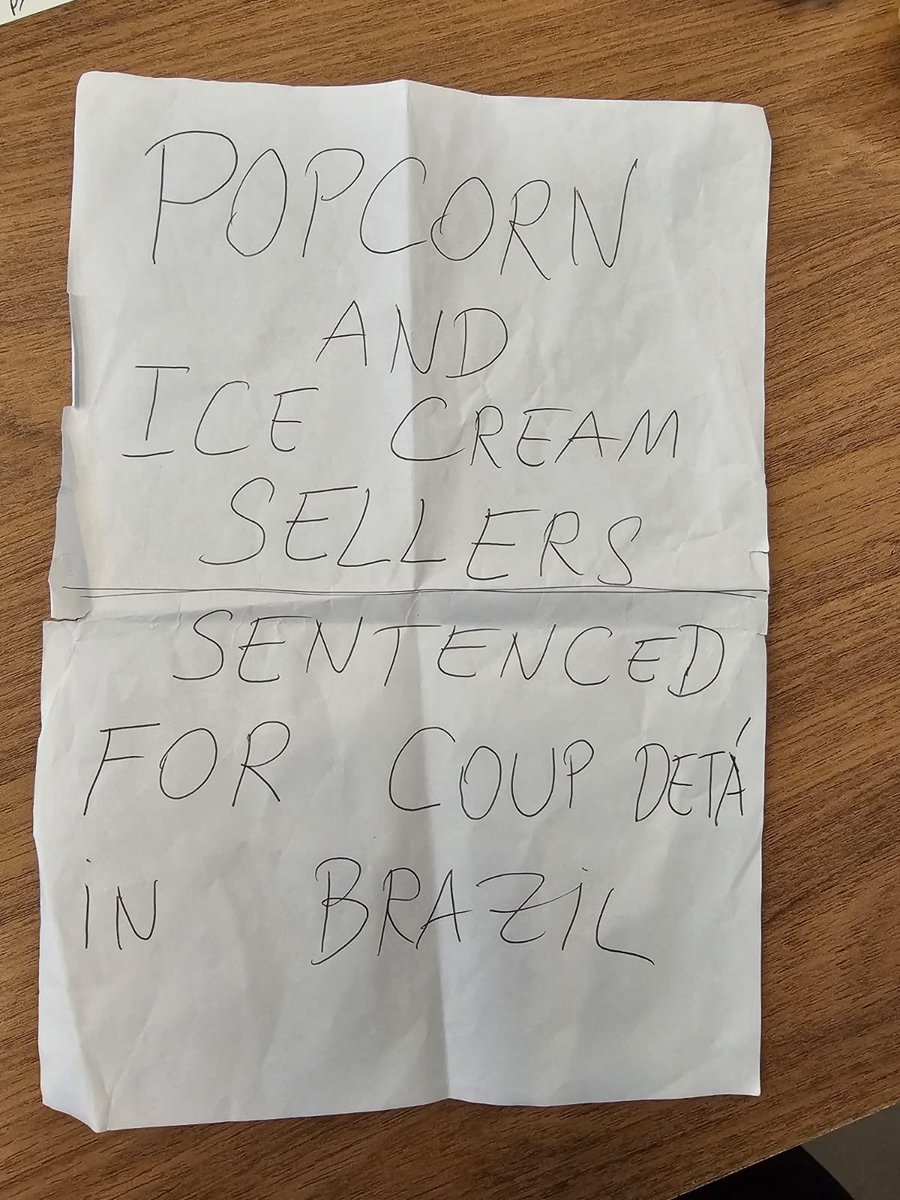 POPCORN
AND
ICE CREAM
SELLERS
SENTENCED
FOR COUP DETÁ
iN BRAZiL